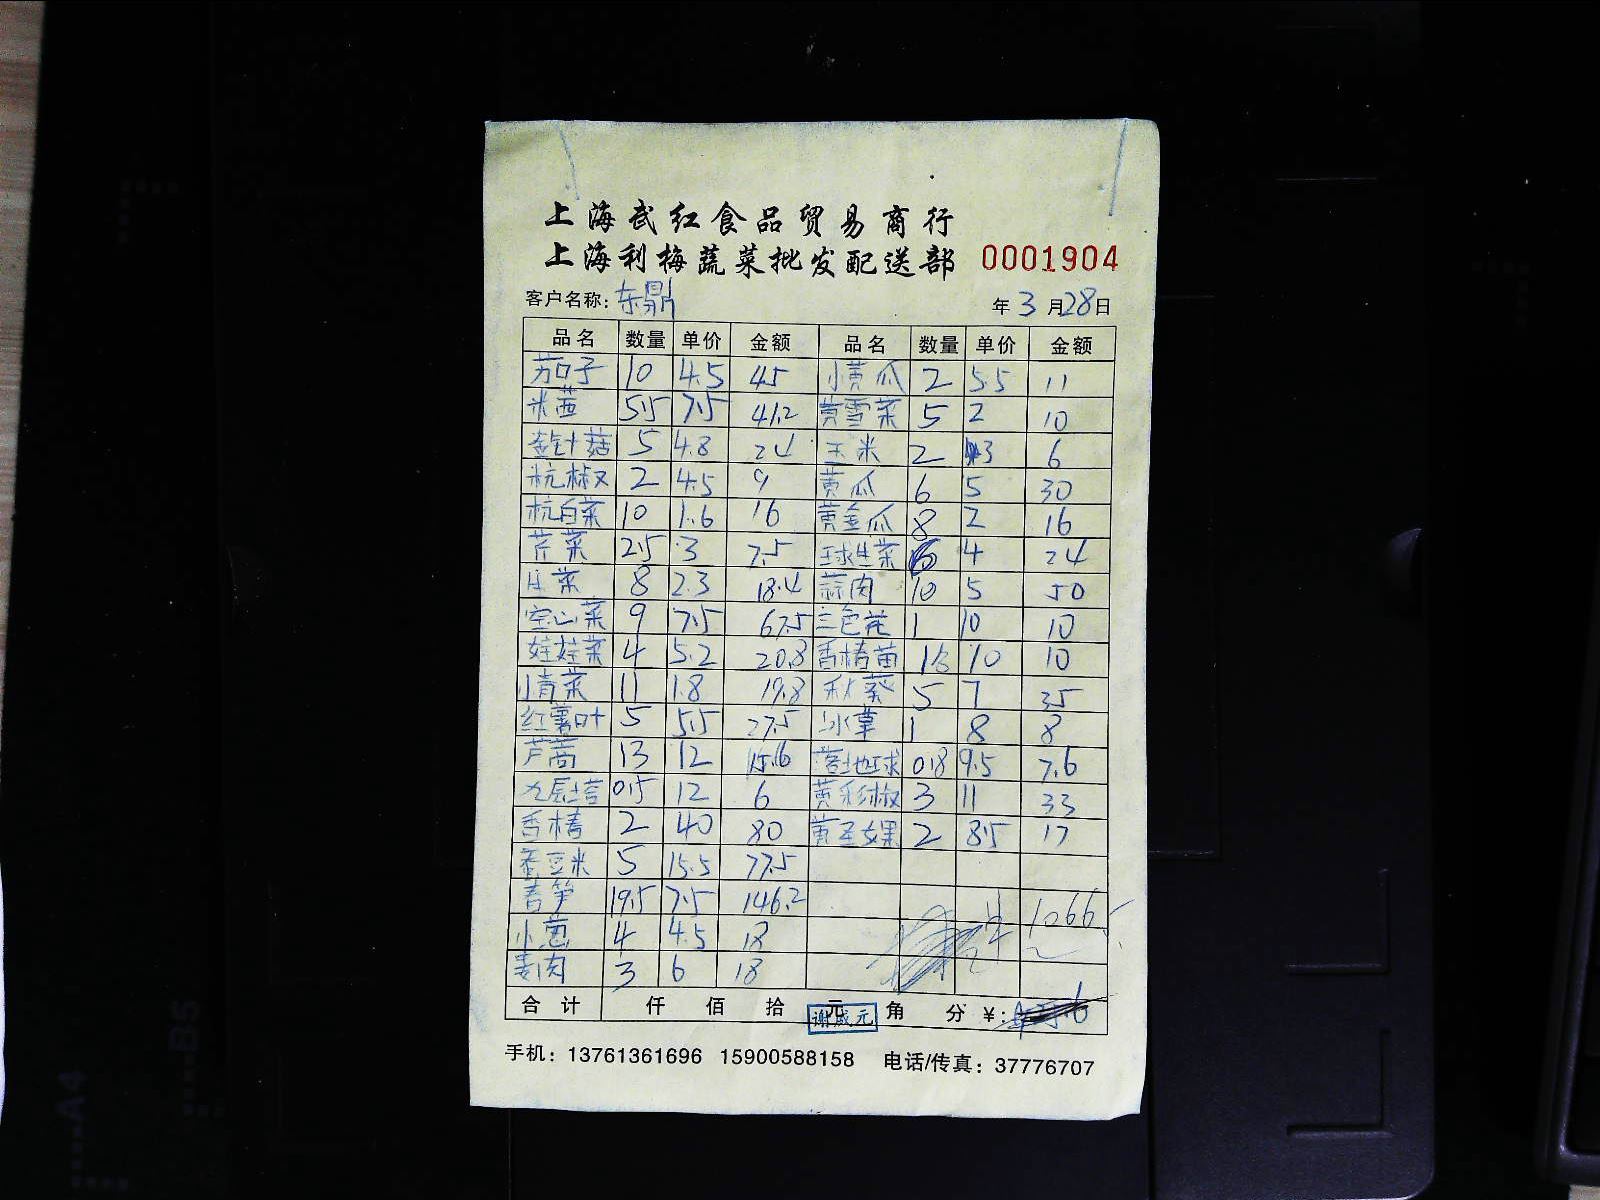 上海武红食品贸易商行
上海利梅蔬菜批发配送部 0001904
客户名称：东鼎 年 3 月 28 日
品名 数量 单价 金额 品名 数量 单价 金额
茄子 10 4.5 45 小黄瓜 2 5.5 11
米苋 5.5 7.5 41.2 黄雪菜 5 2 10
金针菇 5 4.8 24 玉米 2 3 6
杭椒 2 4.5 9 黄瓜 6 5 30
杭白菜 10 1.6 16 黄金瓜 8 2 16
芹菜 2.5 3 7.5 球生菜 6 4 24
菜 8 2.3 18.4 蒜肉 10 5 50
空心菜 9 7.5 67.5 三色花 1 10 10
娃娃菜 4 5.2 20.8 香椿苗 10 10
小青菜 11 1.8 19.8 秋葵 5 7 35
红薯叶 5 5.5 27.5 冰草 1 8 8
芦蒿 13 12 15.6 落地球 0.8 9.5 7.6
九层塔 0.5 12 6 黄彩椒 3 11 33
香椿 2 40 80 黄圣女果 2 8.5 17
蚕豆米 5 15.5 77.5
春笋 19.5 7.5 146.2 1066
小葱 4 4.5 18
姜肉 3 6 18
合计 仟 佰 拾 元 角 分 ¥:
谢成元
手机：13761361696 15900588158 电话/传真：37776707